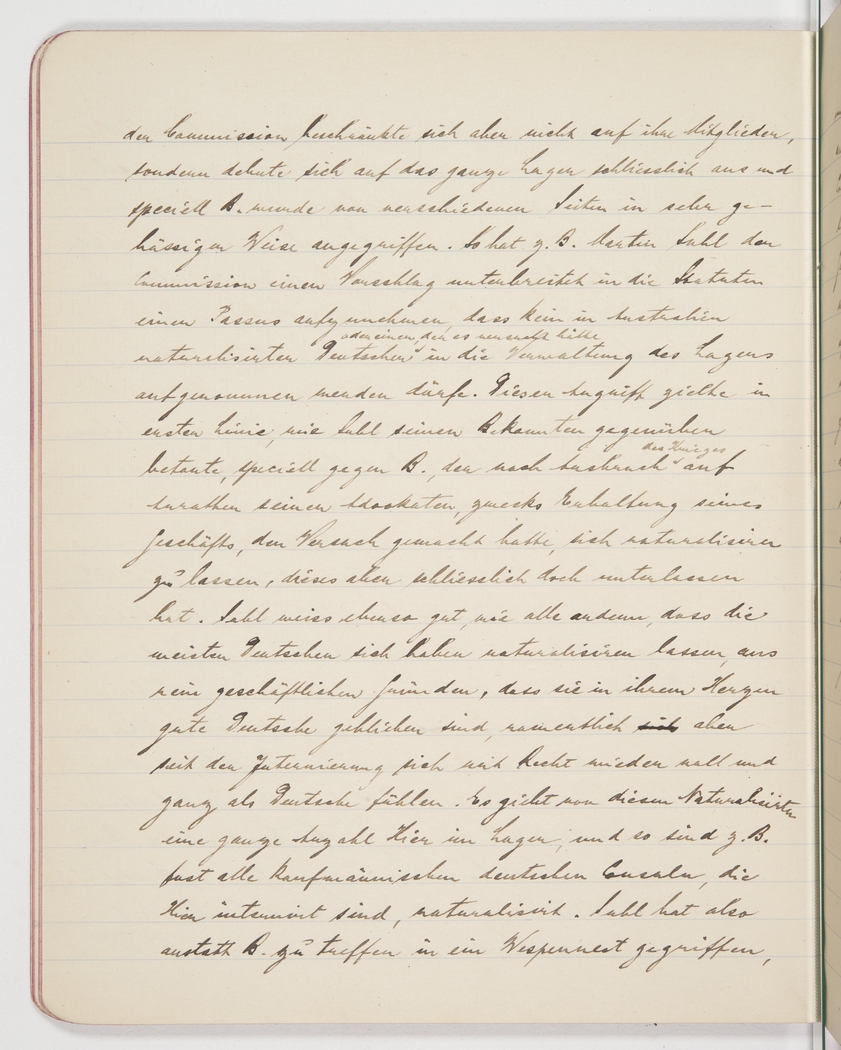 der Commission beschränkte sich aber nicht auf ihre Mitglieder,
sondern dehnte sich auf das ganze Lager schliesslich aus und
speciell B. wurde von verschiedenen Seiten in sehr ge-
hässiger Weise angegriffen. So hat z. B. Martin Suhl der
Commission einen Vorschlag unterbreitet in die Statuten
einen Passus aufzunehmen, dass kein in Australien
oder einen, der es versucht hätte
naturalisirten Deutschen in die Verwaltung des Lagers
aufgenommen werden dürfe. Dieser Angriff zielte in
erster Linie, wie Suhl seinen Bekannten gegenüber
des Krieges
betonte, speciell gegen B., der nach Ausbruch auf
Anrathen seines Advokaten, zwecks Erhaltung seines
Geschäfts, den Versuch gemacht hatte, sich naturalisiren
zu lassen, dieses aber schliesslich doch unterlassen
hat. Suhl weiss ebenso gut, wie alle andern, dass die
meisten Deutschen sich haben naturalisiren lassen, aus
rein geschäftlichen Gründen, dass sie in ihrem Herzen
gute Deutsche geblieben sind, namentlich sich aber
seit der Internierung sich mit Recht wieder voll und
ganz als Deutsche fühlen. Es giebt von diesen Naturalisirten
eine ganze Anzahl Hier im Lager, und so sind z. B.
fast alle kaufmännischen deutschen Consuln, die
Hier internirt sind, naturalisirt. Suhl hat also
anstatt B. zu treffen in ein Wespennest gegriffen,